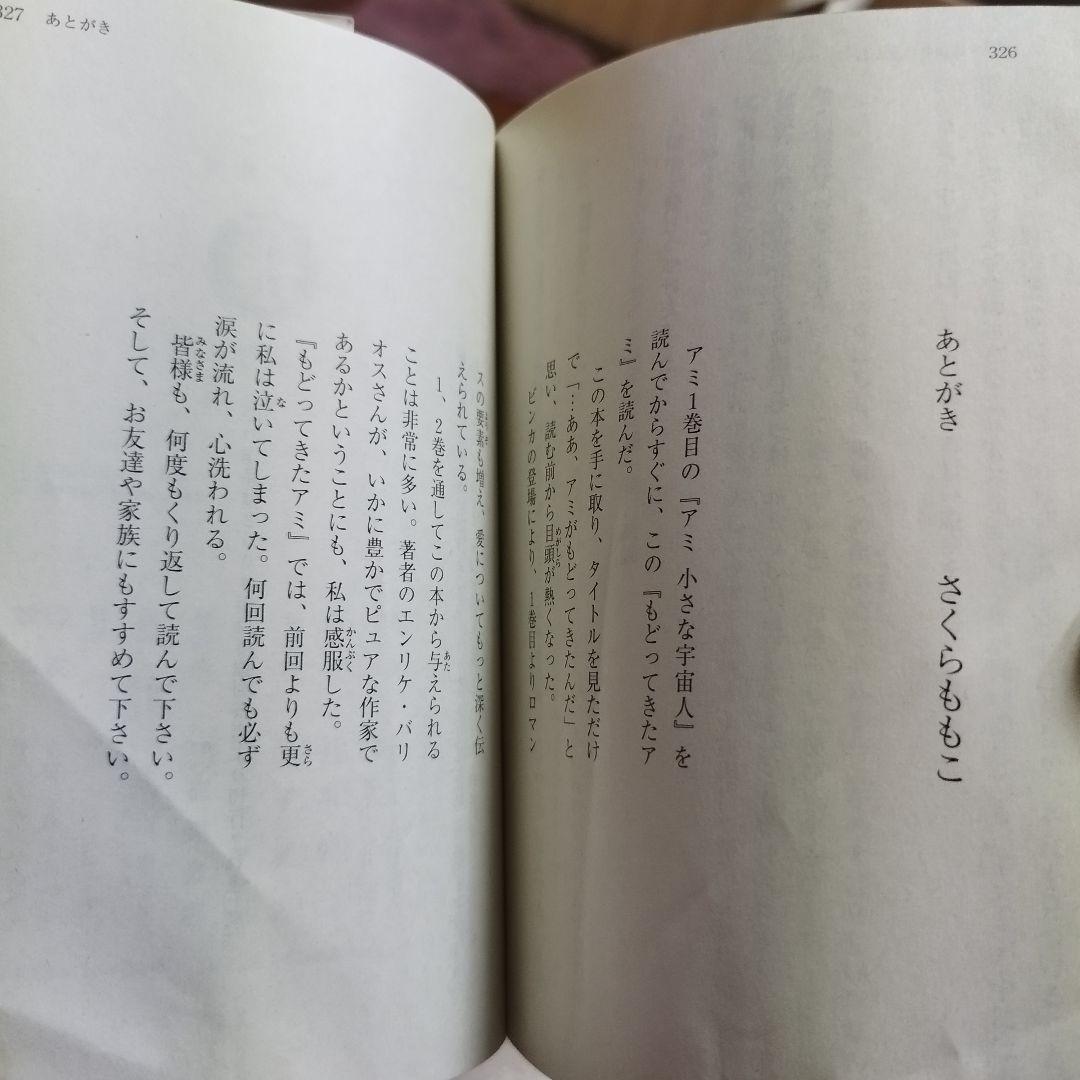 326
あとがき　さくらももこ
アミ1巻目の『アミ 小さな宇宙人』を
読んでからすぐに、この『もどってきたア
ミ』を読んだ。
この本を手に取り、タイトルを見ただけ
で「…ああ、アミがもどってきたんだ」と
思い、読む前から目頭が熱くなった。
ビンカの登場により、1巻目よりロマン
327 あとがき
スの要素も増え、愛についてもっと深く伝
えられている。
1、2巻を通してこの本から与えられる
ことは非常に多い。著者のエンリケ・バリ
オスさんが、いかに豊かでピュアな作家で
あるかということにも、私は感服した。
『もどってきたアミ』では、前回よりも更
に私は泣いてしまった。何回読んでも必ず
涙が流れ、心洗われる。
皆様も、何度もくり返して読んで下さい。
そして、お友達や家族にもすすめて下さい。